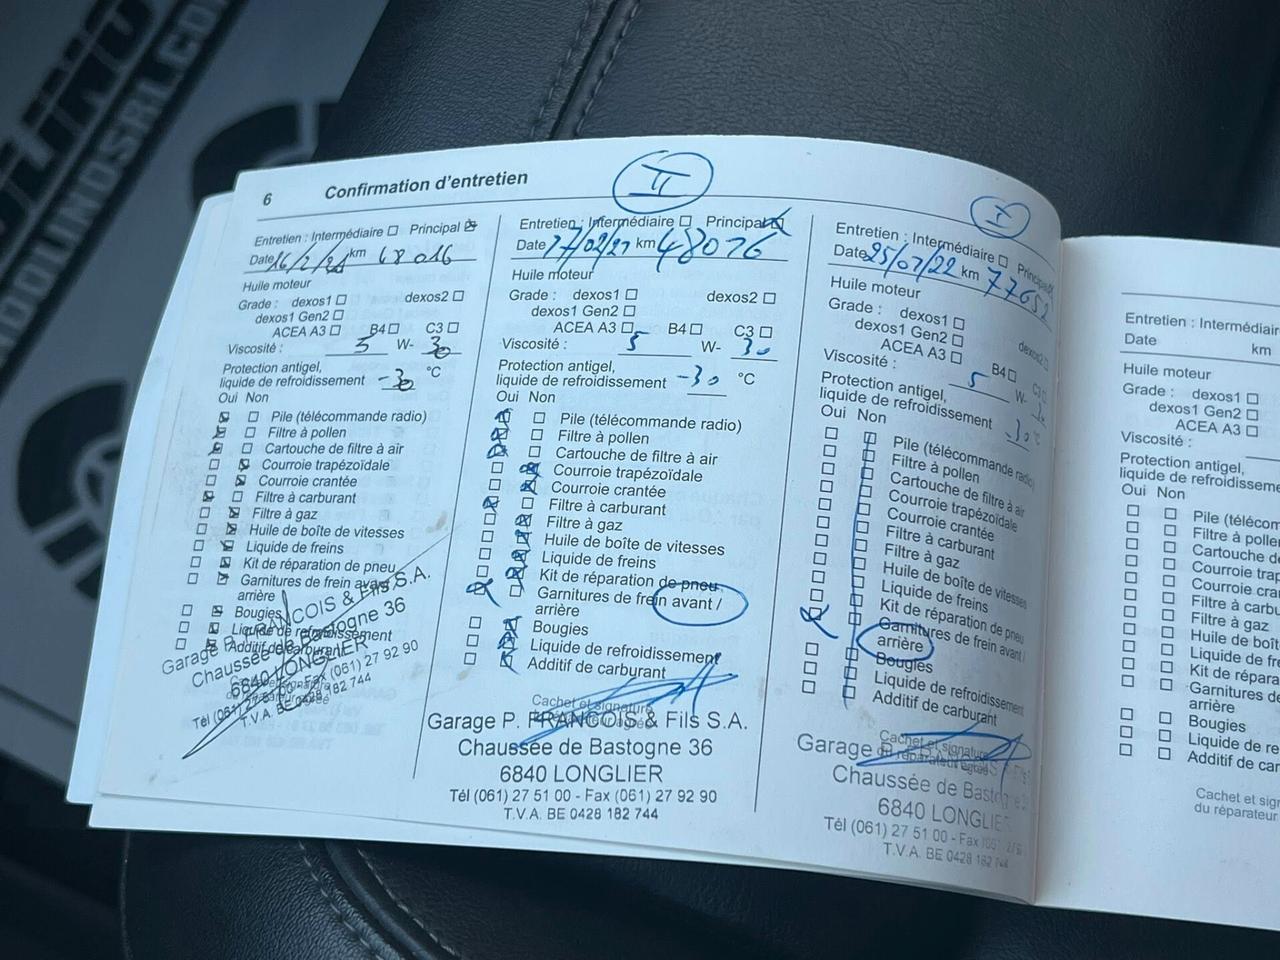 6 Confirmation d'entretien
II
I
Entretien : Intermédiaire Principal
Date km 68016
Huile moteur
Grade : dexos1 dexos2
dexos1 Gen2
ACEA A3 B4 C3
Viscosité : 5 W- 30
Protection antigel,
liquide de refroidissement -30 °C
Oui Non
Pile (télécommande radio)
Filtre à pollen
Cartouche de filtre à air
Courroie trapézoïdale
Courroie crantée
Filtre à carburant
Filtre à gaz
Huile de boîte de vitesses
Liquide de freins
Kit de réparation de pneu
Garnitures de frein avant /
arrière
Bougies
Liquide de refroidissement
Additif de carburant
Garage P. FRANCOIS & Fils S.A.
Chaussée de Bastogne 36
6840 LONGLIER
Tél (061) 27 51 00 - Fax (061) 27 92 90
T.V.A. BE 0428 182 744
Entretien : Intermédiaire Principal
Date 17/02/21 km 48076
Huile moteur
Grade : dexos1 dexos2
dexos1 Gen2
ACEA A3 B4 C3
Viscosité : 5 W- 30
Protection antigel,
liquide de refroidissement -30 °C
Oui Non
Pile (télécommande radio)
Filtre à pollen
Cartouche de filtre à air
Courroie trapézoïdale
Courroie crantée
Filtre à carburant
Filtre à gaz
Huile de boîte de vitesses
Liquide de freins
Kit de réparation de pneu
Garnitures de frein avant /
arrière
Bougies
Liquide de refroidissement
Additif de carburant
Cachet et signature
Garage P. FRANCOIS & Fils S.A.
Chaussée de Bastogne 36
6840 LONGLIER
Tél (061) 27 51 00 - Fax (061) 27 92 90
T.V.A. BE 0428 182 744
Entretien : Intermédiaire Principal
Date 25/07/22 km 77652
Huile moteur
Grade : dexos1 dexos2
dexos1 Gen2
ACEA A3 B4 C3
Viscosité : 5 W- 30
Protection antigel,
liquide de refroidissement -30 °C
Oui Non
Pile (télécommande radio)
Filtre à pollen
Cartouche de filtre à air
Courroie trapézoïdale
Courroie crantée
Filtre à carburant
Filtre à gaz
Huile de boîte de vitesses
Liquide de freins
Kit de réparation de pneu
Garnitures de frein avant /
arrière
Bougies
Liquide de refroidissement
Additif de carburant
Cachet et signature
du réparateur agréé
Garage
Chaussée de Bastogne
6840 LONGLIE
Tél (061) 27 51 00 - Fax
T.V.A. BE 0428 182 744
Entretien : Intermédiair
Date km
Huile moteur
Grade : dexos1
dexos1 Gen2
ACEA A3
Viscosité :
Protection antigel,
liquide de refroidisseme
Oui Non
Pile (télécom
Filtre à poller
Cartouche de
Courroie trap
Courroie cra
Filtre à carbu
Filtre à gaz
Huile de boît
Liquide de fr
Kit de répara
Garnitures de
arrière
Bougies
Liquide de re
Additif de car
Cachet et sign
du réparateur